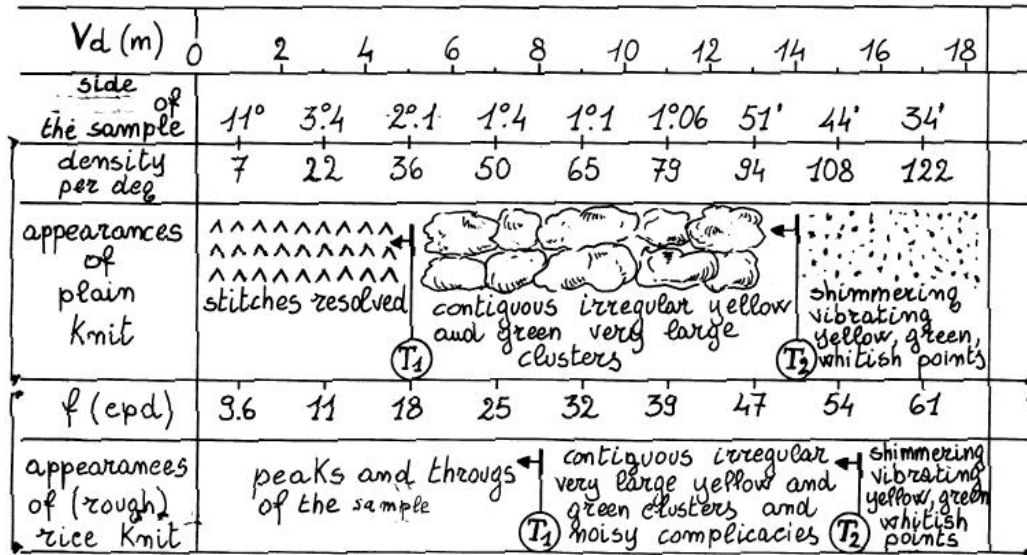 Vd (m) 0 2 4 6 8 10 12 14 16 18
side of the sample 11° 3°.4 2°.1 1°.4 1°.1 1°.06 51' 44' 34'
density per deg 7 22 36 50 65 79 94 108 122
appearances
of
plain
Knit
stitches resolved
T1
contiguous irregular yellow
and green very large
clusters
T2
shimmering
vibrating
yellow, green,
whitish points
f (epd) 9.6 11 18 25 32 39 47 54 61
appearances
of (rough)
rice Knit
peaks and througs
of the sample
T1
contiguous irregular
very large yellow and
green clusters and
noisy complicacies
T2
shimmering
vibrating
yellow, green
whitish
points